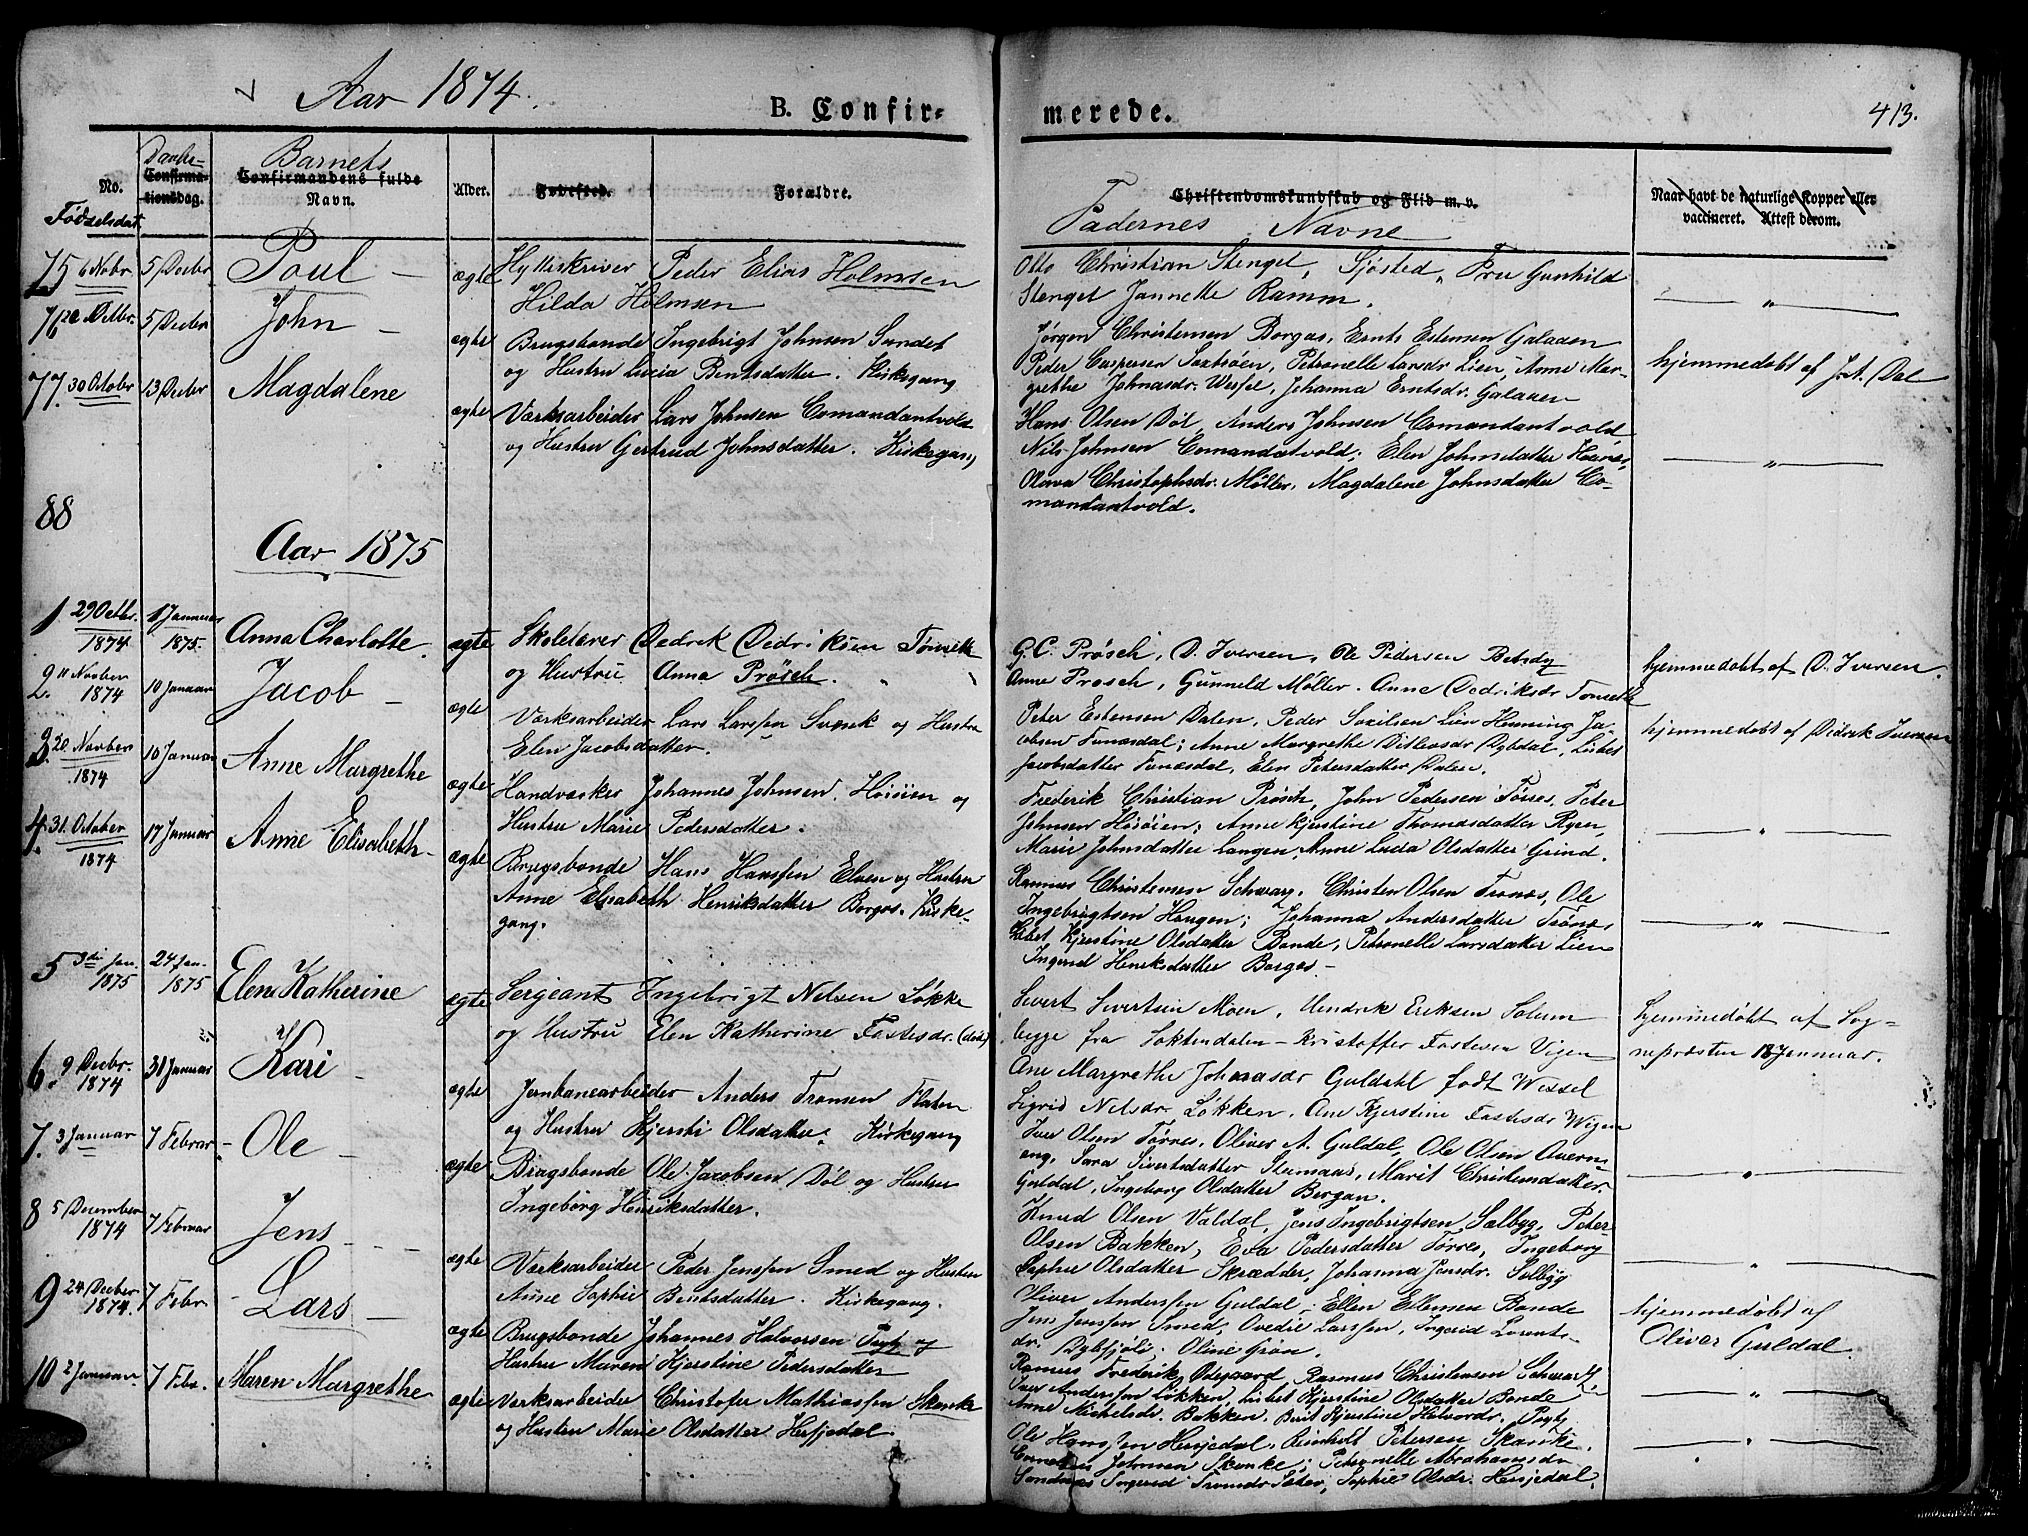 Aar 1874.
B. Confir-
merede.
413.
Daabs-
Barnets
No.
Confirma-
tionsdag.
Confirmandens fulde
Navn.
Alder.
Fødested.
Forældre.
Christendomskundskab og Flid m.v.
Naar havt de naturlige Kopper eller
vaccineret. Attest derom.
Fødselsdat.
Fadernes Navne
75 6 Novbr 5 Decbr Poul - ægte Hytteskriver Peder Elias Holmsen
Hilda Holmsen
Otto Christian Stengel, Sjøsted, Fru Gunhild
Stengel Jannette Ramm.
76 5 Decbr John - ægte Brugsbonde Ingebrigt Johnsen Sundet
og Hustru Lucia Bentsdatter. Kirkegang
Jørgen Christensen Borgas, Ernts Estensen Galaaen
Peder Caspersen Saxtrøen, Petronelle Larsdr Lien, Anne Mar-
grethe Johnasdr. Wessel, Johanna Erntsdr. Galaaen
hjemmedøbt af J. A. Dal
77. 30 Octobr 13 Decbr Magdalene ægte Værksarbeider Lars Johnsen Comandantvold
og Hustru Gertrud Johnsdatter. Kirkegang
Hans Olsen Döl, Anders Johnsen Comandantvold
Nils Johnsen Comandatvold; Elen Johnsdatter
Olava Christophsdr. Møller, Magdalene Johnsdatter Co-
mandantvold.
88
Aar 1875
1 29 Octbr. 1874 1 Januar 1875. Anna Charlotte. ægte Skolelærer Dedrik Dedriksen Tønseth
og Hustru Anna Prösch.
G. C. Prösch, D. Iversen, Ole Pedersen Betsdy
Anne Prosch, Gunneld Møller. Anne Dedriksdr Tonseth
hjemmedøbt af D. Iversen.
2. Novber 1874 10 Januar Jacob - ægte Værksarbeider Lars Larssen Svensk og Hustru
Elen Jacobsdatter.
Peter Estensen Dalen, Peder Lien Henning Ja-
cobsen Funæsdal; Anne Margrethe Ditlevsdr Dybdal, Lisbet
Jacobsdatter Funæsdal, Elen Petersdatter Dalen.
hjemmedøbt af Didrik Iversen
3. 20. Novber 1874 10 Januar Anne Margrethe ægte Handværker Johannes Johnsen Høiöien og
Hustru Marie Pedersdatter.
Frederik Christian Prösch, John Pedersen Tørres, Peter
Johnsen Høiöien; Anne Kjerstine Thomasdatter Ryen,
Marie Johnsdatter Langen, Anne Lucia Olsdatter Grind.
4. 31. October 1874 17 Januar Anne Elisabeth- ægte Brugsbonde Hans Hanssen Elven og Hustru
Anne Elisabeth Henriksdatter Borgos. Kirke-
gang.
Rasmus Christensen Schwarz, Christen Olsen Trønæs, Ole
Ingebrigtsen Haugen; Johanna Andersdatter Trønæs,
Lisbet Kjerstine Olsdatter Bonde, Petronelle Larsdatter Lien
Ingerid Henriksdatter Borgos -
5 3die Jan. 1875 24 Jan. 1875 Elen Katherine ægte Sergeant Ingebrigt Nelsen Løkke
og Hustru Elen Katherine Fastesdr. (död)
Sivert Sivertsen Moen, Hendrik Eriksen Solem
begge fra Soktendalen - Kristoffer Fastesen Vigen
Ane Margrethe Johnasdr Guldahl født Wessel
Sigrid Nelsdr. Løkken, Ane Kjerstine Fastesdr Wigen
hjemmedøbt af Sog-
nepræsten 18 Januar.
6. 9 Decbr. 1874 31 Januar Kari - ægte Jernbanearbeider Anders Tromsen Flaten
og Hustru Kjersti Olsdatter. Kirkegang
Iver Olsen Tørres, Oliver A. Guldal, Ole Olsen Avern-
eng, Sara Sivertsdatter Stumaas, Marit Christensdatter
Guldal, Ingeborg Olsdatter Bergan.
7. 3 Januar 7 Februar - Ole - ægte Brugsbonde Ole Jacobsen Döl og Hustru
Ingeborg Henriksdatter.
Knud Olsen Valdal, Jens Ingebrigtsen Solbyg, Peter
Olsen Bakken, Eva Pedersdatter Tørres, Ingeborg
Sophie Olsdatter Skrædder, Johanna Jensdr. Solbyg
8 5 December 1874 7 Februar Jens - ægte Værksarbeider Peder Jenssen Smed og Hustru
Anne Sophie Bentsdatter. Kirkegang.
Oliver Anderssen Guldal, Ellen Ellensen Bonde
Jens Jenssen Smed, Ovedie Larssen, Ingerid Lorents-
dr. Dybfjeld. Oline Grön.
9 24 Decber 1874. 7 Febr. Lars - ægte Brugsbonde Johannes Halvorsen Pagtz og
Hustru Maren Kjerstine Pedersdatter
Rasmus Frederik Ødegaard, Rasmus Christensen Schwartz
Iver Anderssen Løkken, Lisbet Kjerstine Olsdatter Bonde
Anne Michelsdr. Bakken, Berit Kjerstine Halvordr. Pagtz
hjemmedøbt af
Oliver Guldal.
10 2 Januar 7 Febr. Maren Margrethe ægte Værksarbeider Christofer Mathiassen Skanke
og Hustru Marie Olsdatter Hessjedal.
Ole Hanssen Hessjedal, Reinholt Petersen Skanke,
Cornelius Johnsen Skanke; Petronelle Abrahamsdr
Sandnæs Ingerid Tromsdr Sæter, Sophie Olsdr. Hessjedal.